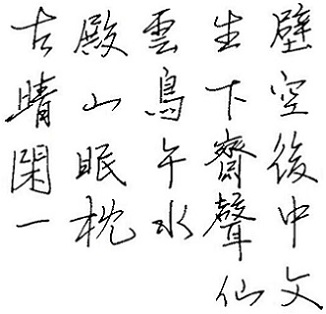 古殿雲生壁
晴山鳥下空
閑眠午齋後
一枕水聲中
仙文